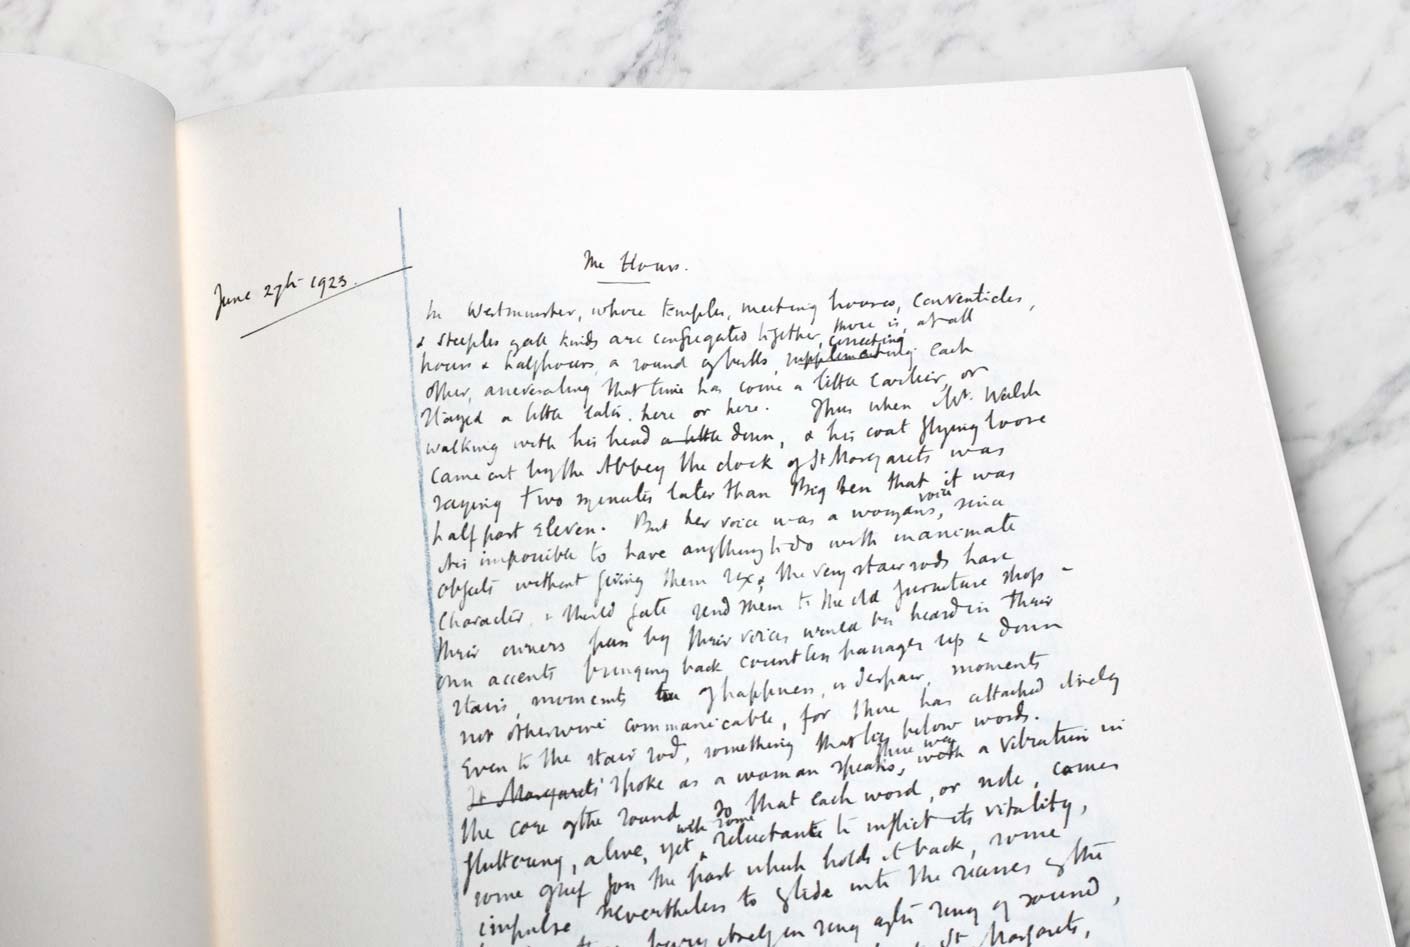 June 27th 1923.
The Hours.
In Westminster, where temples, meeting houses, conventicles,
& steeples of all kinds are congregated together, there is, at all
hours & halfhours, a round of bells, correcting
supplementing each
other, asseverating that time has come a little earlier, or
stayed a little later, here or here. Thus when Mr. Walsh
walking with his head a little down, & his coat flying loose
came out by the Abbey the clock of St Margarets was
saying two minutes later than Big Ben that it was
half past eleven. But her voice was a woman's, voice
since
it is impossible to have anything to do with inanimate
objects without giving them sex; the very stair rods have
character, & should fate send them to the old furniture shop -
their owners pass by their voices would be heard in their
own accents bringing back countless passages up & down
stairs, moments of happiness, or despair, moments
not otherwise communicable, for there has attached itself
even to the stair rod, something that lies below words.
St Margarets' spoke as a woman speaks, there was
with a vibration in
the core of the sound so that each word, or note, comes
fluttering, alive, yet with some
reluctante to inflict its vitality,
some grief for the past which holds it back, some
impulse nevertheless to glide into the recesses of the
itself in ring after ring of sound,
St. Margarets,